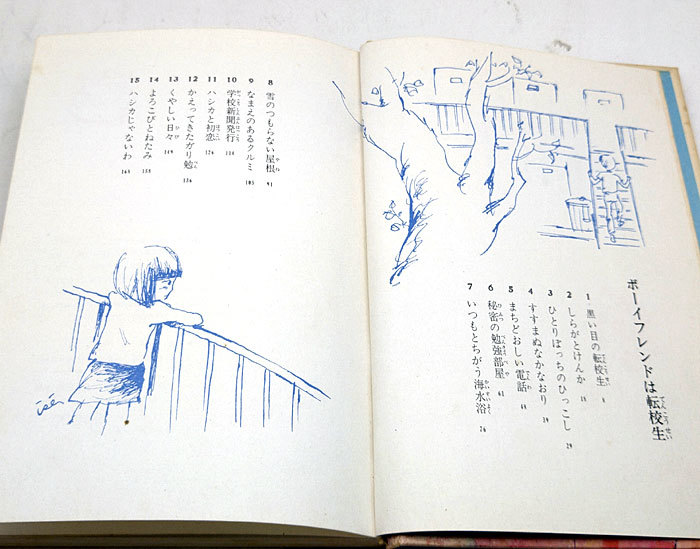 ボーイフレンドは転校生
1 黒い目の転校生 6
2 しらがとけんか 15
3 ひとりぼっちのひっこし 29
4 すすまぬなかなおり 39
5 まちどおしい電話 48
6 秘密の勉強部屋 62
7 いつもとちがう海水浴 76
8 雪のつもらない屋根 91
9 なまえのあるクルミ 103
10 学校新聞発行 114
11 ハシカと初恋 126
12 かえってきたガリ勉 136
13 くやしい日々 149
14 よろこびとねたみ 158
15 ハシカじゃないわ 168